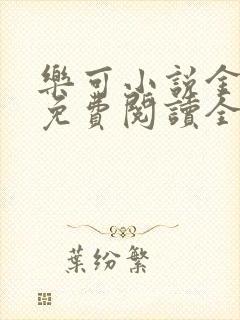 樂可小說全
免費閱讀全
葉紛繁